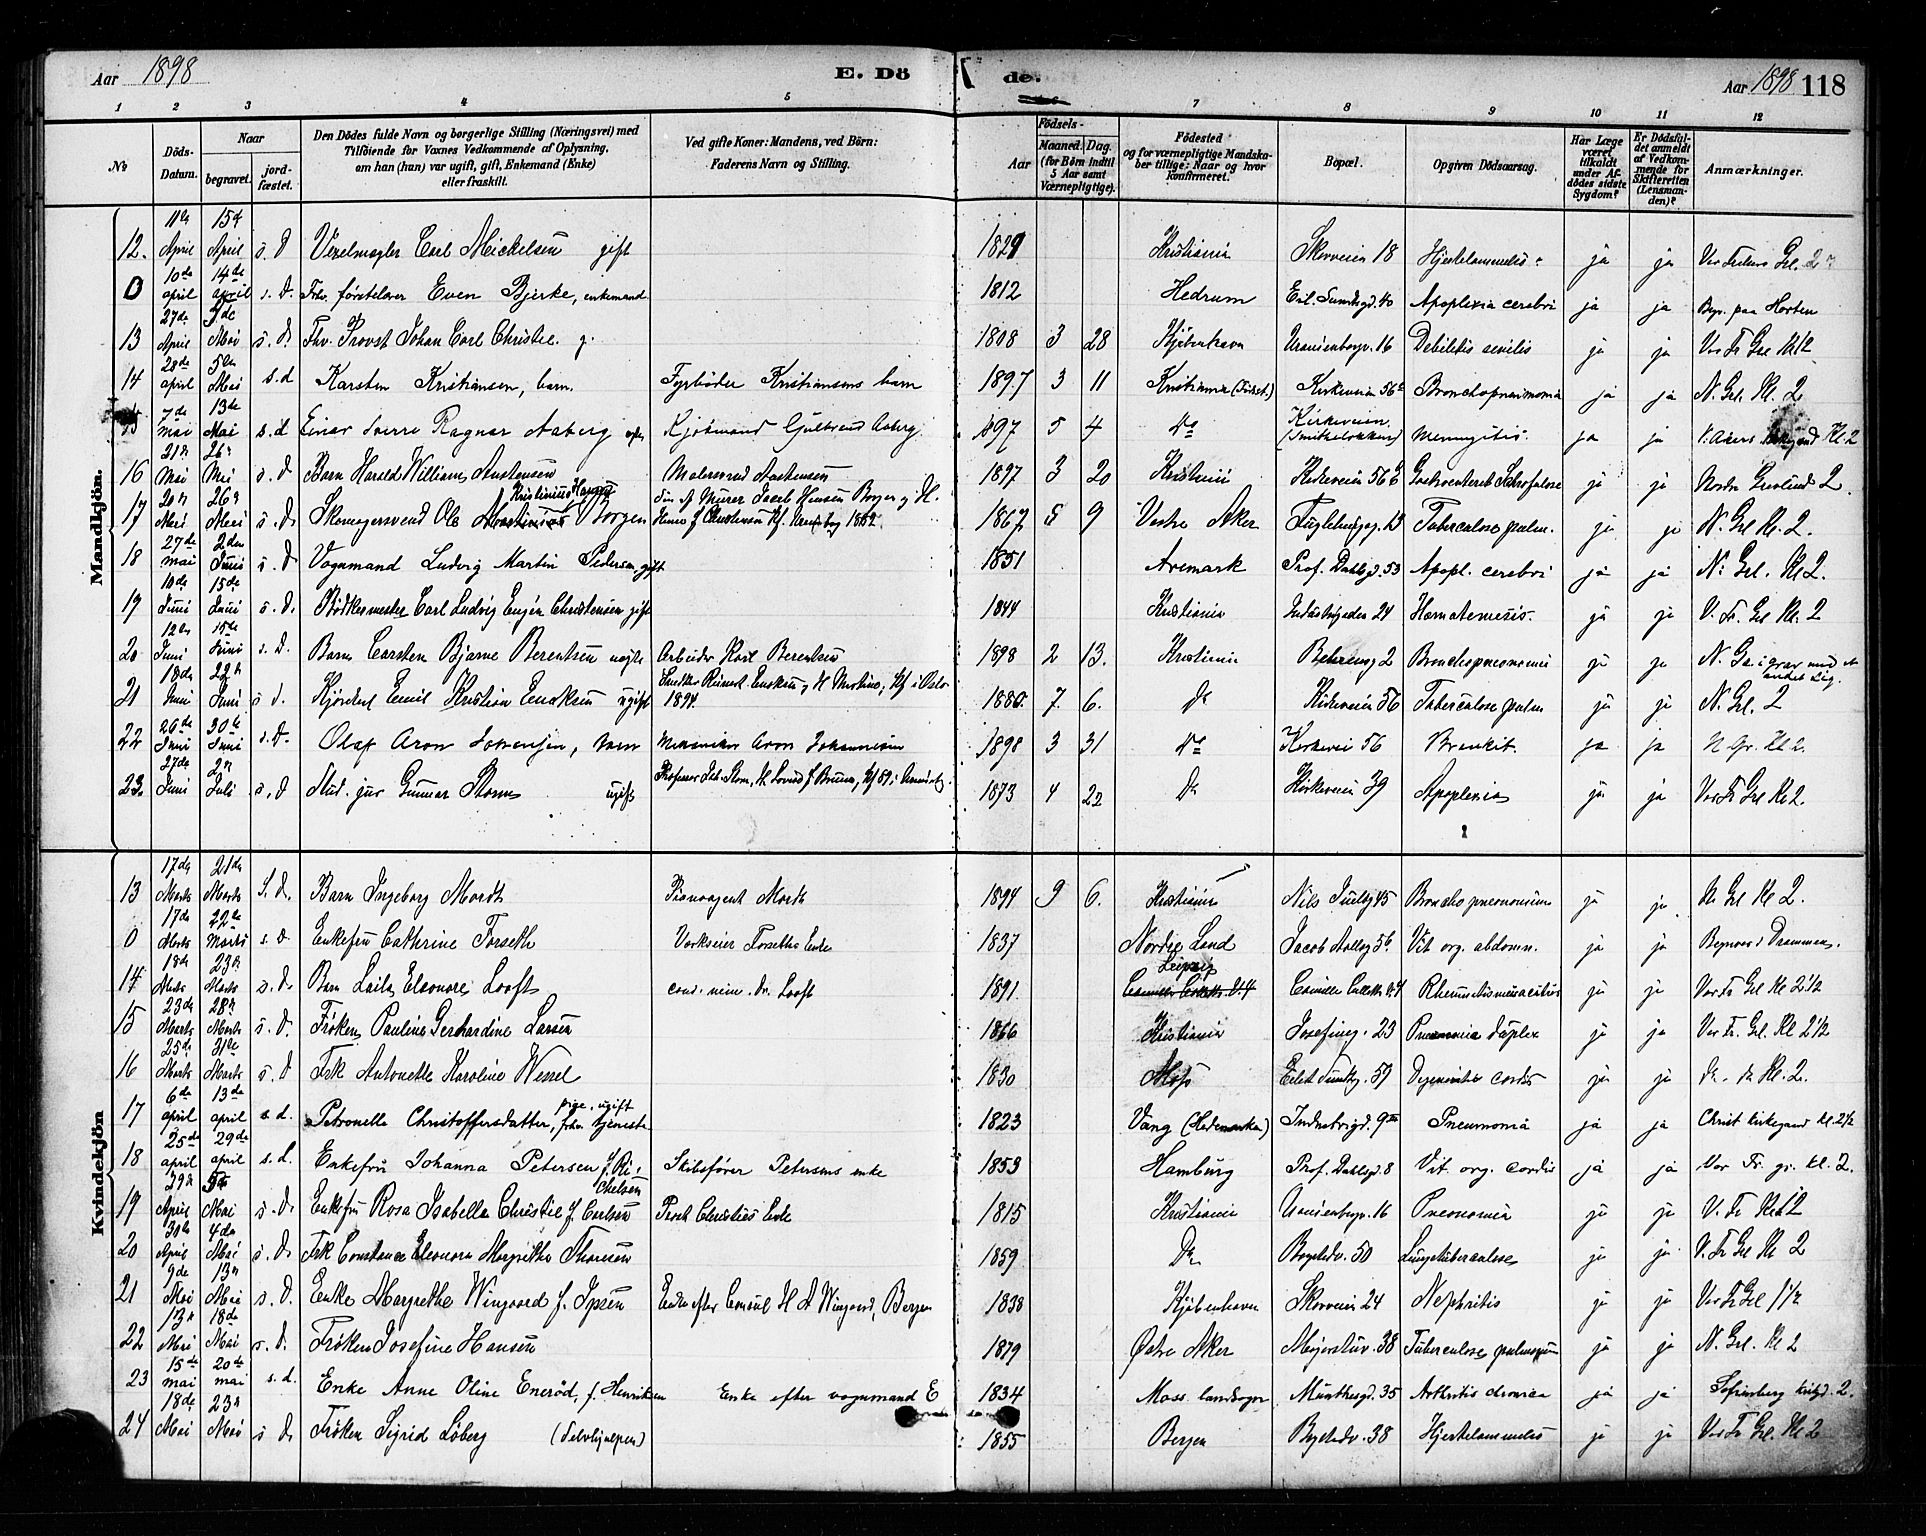 Aar 1898 E. Döde. Aar 1898 118
1 2 3 4 5 7 8 9 10 11 12
No
Döds-Datum.
Naar begravet. jordfæstet.
Den Dödes fulde Navn og borgerlige Stilling (Næringsvei) med Tilföiende for Voxnes Vedkommende af Oplysning, om han (hun) var ugift, gift, Enkemand (Enke) eller fraskilt.
Ved gifte Koner: Mandens, ved Börn: Faderens Navn og Stilling.
Födsels-
Aar
Maaned. Dag. (for Börn indtil 5 Aar samt Værnepligtige).
Födested og for værnepligtige Mandskaber tillige: Naar og hvor konfirmeret.
Bopæl.
Opgiven Dödsaarsag.
Har Læge været tilkaldt under Afdödes sidste Sygdom?
Er Dödsfaldet anmeldt af Vedkommende for Skifteretten (Lensmanden)?
Anmærkninger.
Mandkjön.
12. 11te April 15de April s. D Vexelmægler Carl Mickelsen gift 1829 Kristiania Skovveien 18 Hjertelammelse ja ja Vor Frelsers Grl. 2
0 10de april 14de april s. D. Fhv. Even Bjerke, enkemand 1812 Hedrum Eil. Sundtsgd. 40 Apoplexia cerebri ja ja Begr. paa Horten
13 27de April Mai s. D. Fhv. Provst Johan Carl Christie. g. 1808 3 28 Kjöbenhavn Uranienborgv. 16 Debilitas senilis ja ja Vor Fr Grl Kl 1/2
14 28de april 5te Mai s. d Karsten Kristiansen, barn. Fyrböder Kristiansens barn 1897 3 11 Kristiania Kirkeveien 56 Bronchopneumonia ja ja N. Grl. Kl. 2
15 7de mai 13de Mai s. d Einar Sverre Ragnar Aaberg Kjötmand Gulbrand Aaberg 1897 5 4 Do Kirkeveien Meningitis ja ja V. Akers Kl 2
16 21de Mai 26 Mai s. D Barn Harald William Austensen Malersvend Austensen 1897 3 20 Kristiania Kirkeveien 56 ja ja Nordre Gravlund 2.
17 20de Mai 26 Mai s. D. Skomagersvend Ole Kristinius Hansen Borgen Sön af Murer Jacob Hansen Borgen og H. 1867 5 9 Vestre Aker Fuglehaugg. 13 Tuberculose pulm. ja ja N. Grl Kl. 2.
18 27de mai 2den Juni s. D Vognmand Ludvig Martin Pedersen, gift 1851 Aremark Prof. Dahlsgd. 53 Apopl. cerebri ja ja N. Grl. Kl 2.
19 10de Juni 15de Juni s. D. Bödkermester Carl Ludvig Eugen Christensen gift 1844 Kristiania Industrigaden 24 Hæmatemesis. ja ja V. Fr. Grl Kl. 2
20 12te Juni 15de Juni s. D. Barn Carsten Bjarne Berentsen Arbeider Karl Berentsen 1898 2 13. Kristiania Behrensg 2 Bronchopneumoni ja ja N. Gr. i grav med et andet Lig.
21 18de Juni 22 Juni s. d. Emil Kristian Eriksen ugift 1894. 1880. 7. 6. Do Kirkeveien 56 Tuberculose pulm ja ja N. Grl. 2
22 26de Juni 30te Juni s. D. Olaf Aron Johansen, barn Mekaniker Aron Johannesen 1898 3 31 Do Kirkevei 56 Bronkit. ja ja N Gr. Kl 2.
23. 27de Juni 2 Juli s. D Stud. jur Gunnar Storm ugift Professor Joh. Storm, H. Lovise f. Bruun, 1873 4 22 Do Kirkeveien 39 Apoplexia ja ja Vor Fr Grl Kl 2.
Kvindekjön
13 17de Marts 21de Marts s. D. Barn Ingeborg Mordt Pianoagent Mordt 1894 9 6. Kristiania Nils Juelsg 45 Bronchopneumonium ja ja N Grl Kl 2.
0 17de Marts 22de Marts s. D Enkefru Cathrine Forseth Forseths Enke 1837 Nordre Land Jacob Aallsg 5b Vit org. abdomn. ja ja Drammen.
14 18de Marts 23de Marts s. D. Barn Laila Eleonore Looft cand. min. Dr. Looft 1891. Leipzig Camilla Colletts V. 4 ja ja Vor Fr Grl Kl 2 1/2
15 23de Marts 28 Marts s. D. Fröken Pauline Gerhardine Larsen 1866 Kristiania Josefineg. 23 Pneumonia duplex ja ja Vor Fr. Grl. Kl 2 1/2
16 25de Marts 31te Marts s. D Frk Antonette Karoline Wessel 1830 Moss Eilert Sundtsg. 57 cordis ja ja Do. Do Kl. 2.
17 6de april 13de april s. d. Petronelle Christoffersdatter, fhv. tjeneste pige, ugift 1823 Vang (Hedemarken) Industrigd. 9 Pneumonia ja ja Christ kirkegaard kl. 2 1/2
18 25de april 29de april s. d. Enkefru Johanna Petersen f. Richelsen Skibsförer Petersens enke 1853 Hamburg Prof. Dahlsgd. 8 Vit. org. cordis ja ja Vor Fr. gr. kl. 2.
19 29de April Mai s. D. Enkefru Rosa Isabella Christie f. Carlsen Provst Christies Enke 1815 Kristiania Uranienborgv. 16 Pneumonia ja ja V. Fr Kl 1/2
20 30te April 4de Mai s. D. Frk Constance Eleonora Margrethe Thoresen 1859 Do Bogstadv. 50 Lungetuberculose ja ja V. Fr Grl Kl 2
21 9de Mai 13 Mai s. D. Enke Margrethe Wingaard f. Ipsen Enke efter Consul H A Wingaard, Bergen 1838 Kjöbenhavn Skovveien 24 Nephritis ja ja Vor Fr Grl 1 1/2
22 13de Mai 18de Mai s. D. Fröken Josefine Hansen 1879 Östre Aker Majorstuv. 38 Tuberculose pulmonum ja ja N. Grl. Kl 2
23 15de mai 20de mai s. d. Enke Anne Oline Eneröd, f. Henriksen Enke efter vognmand E 1834 Moss landsogn Munthesgd. 35 Arthritis chronica ja ja Sofienberg kirkgd. 2.
24 18de Mai 23de Mai s D. Fröken Sigrid Löberg (selvhjulpen) 1855 Bergen Bogstadv. 38 Hjertelammelse ja ja Vor Fr Grl. Kl 2